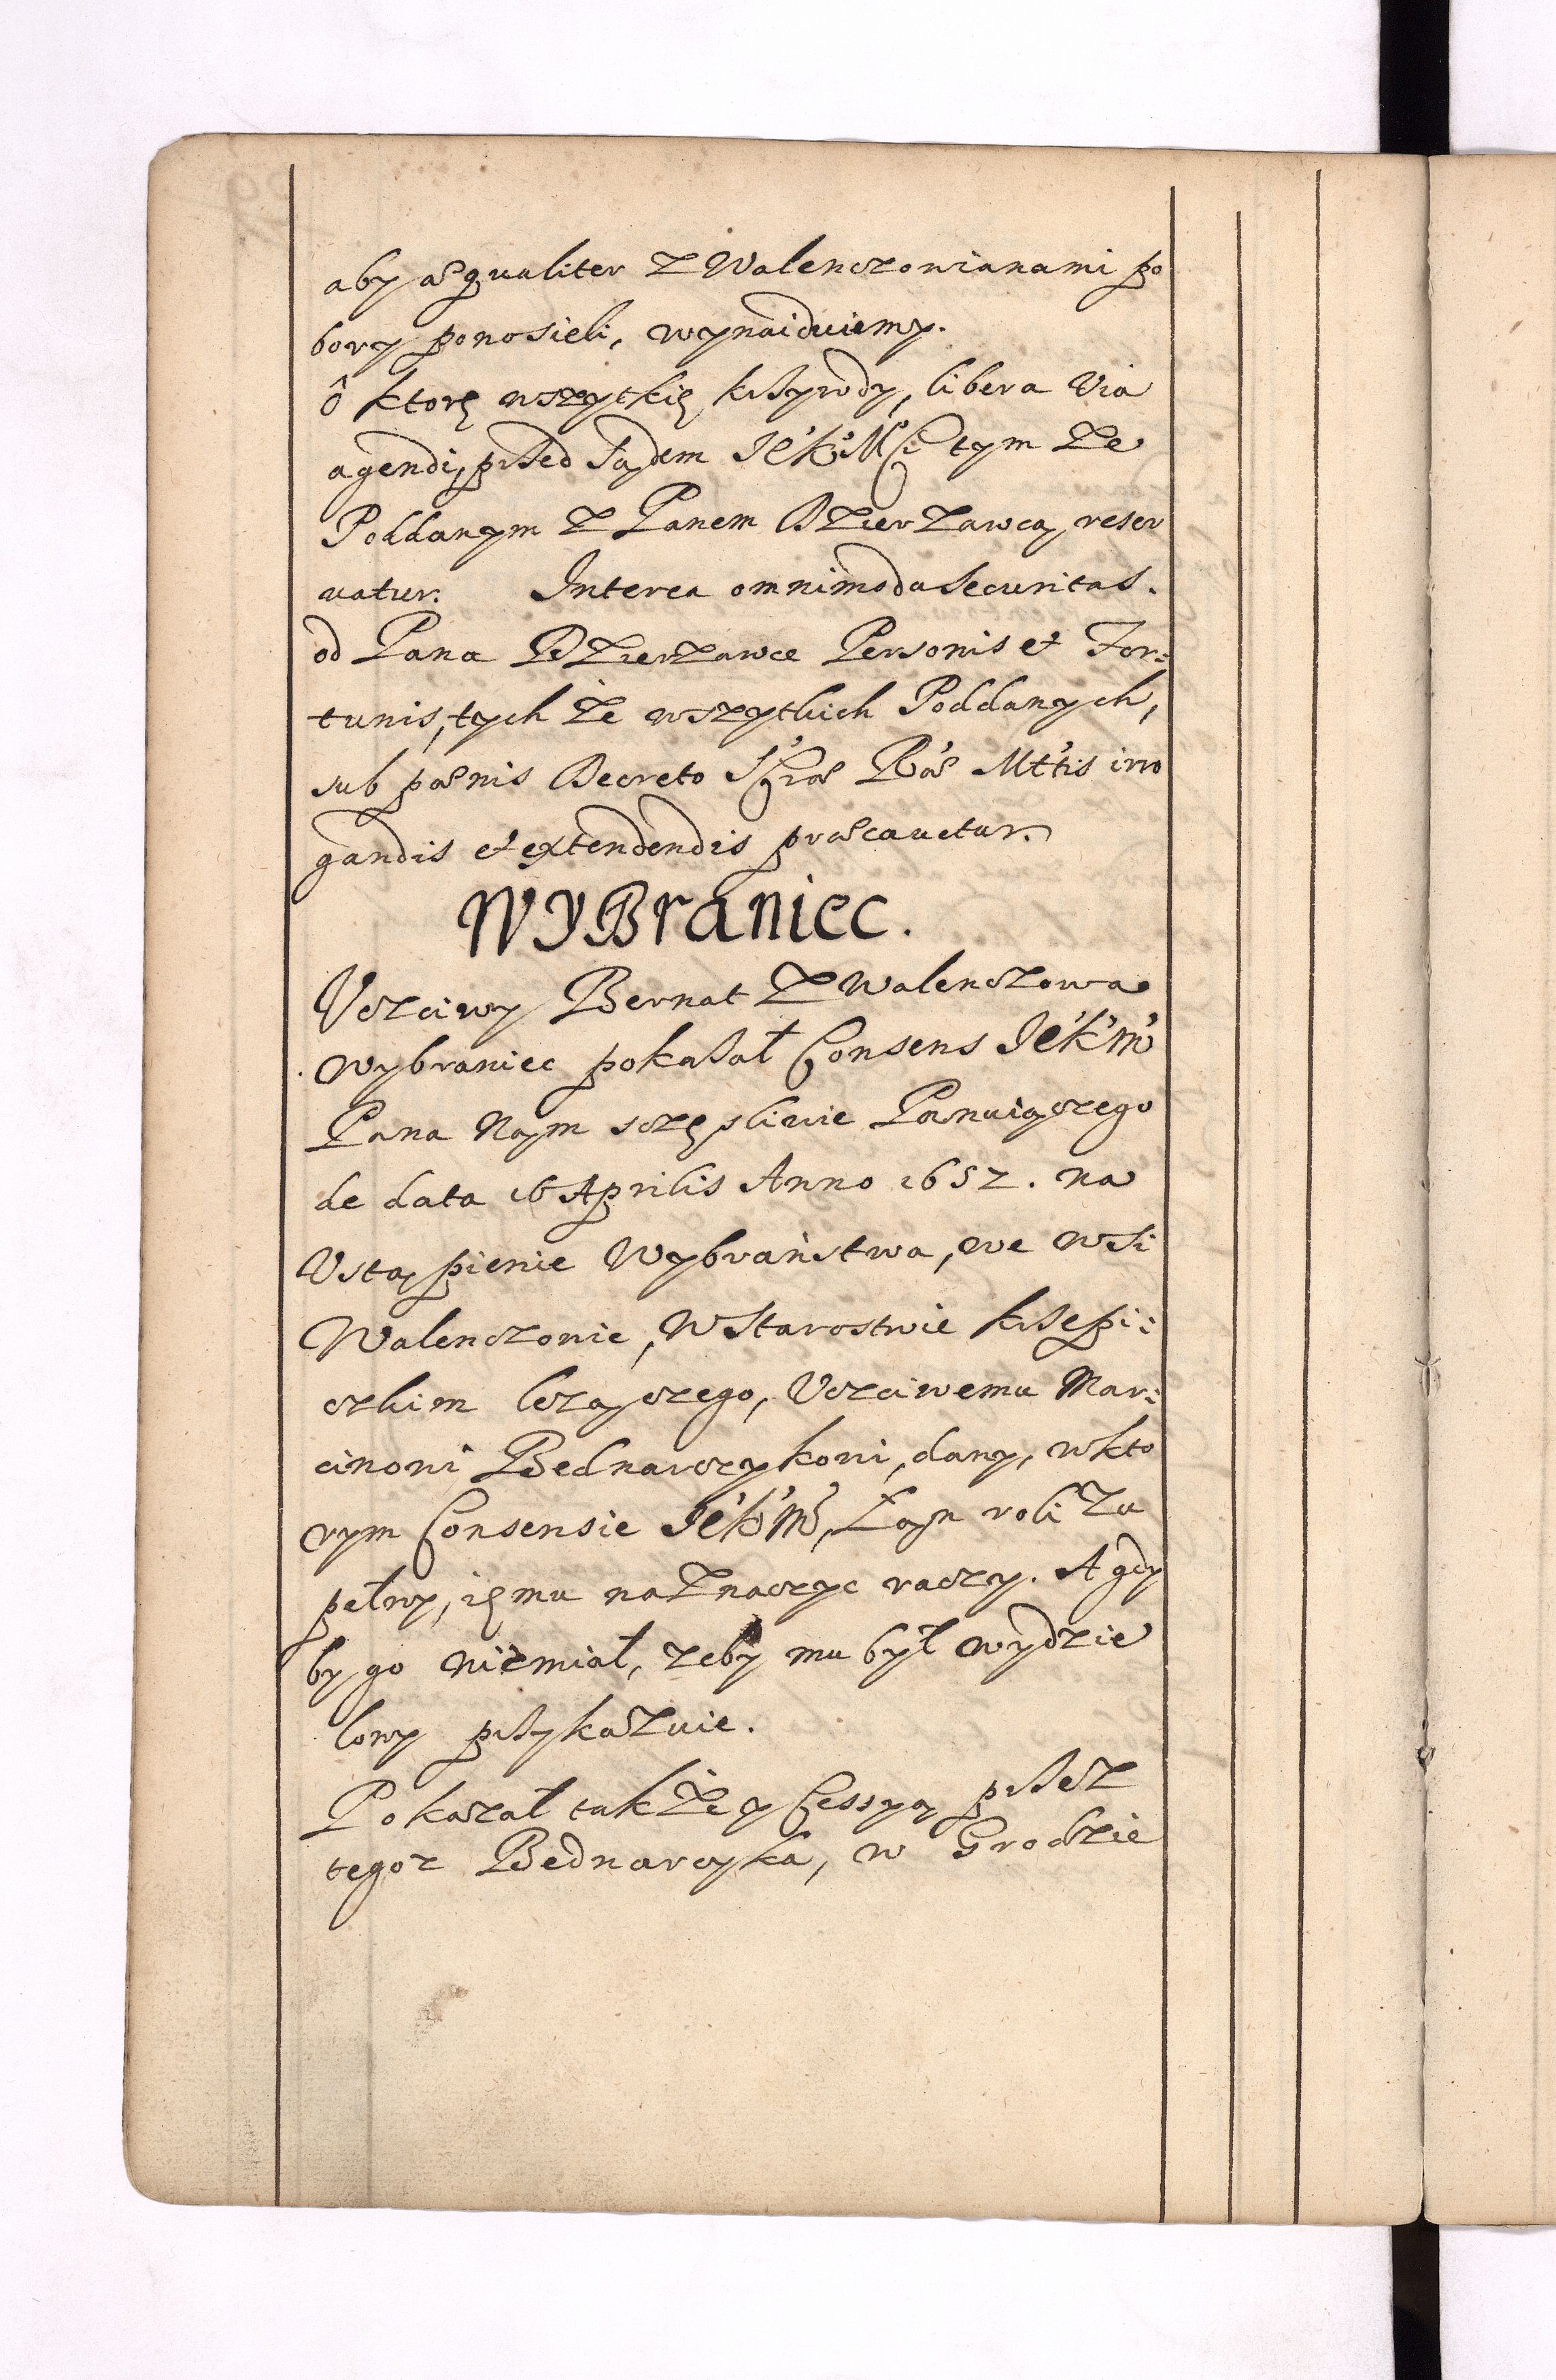 aby æqualiter z Walenczowianami po
bory ponosieli, wynaiduiemy.
ô ktorę wszytkię krzywdy, libera Via
agendi, przed Sądem JeᵒKᵒMᵒCi tym że
Poddanym z Panem Dzierzawcą, reser
uatur. Interea omnimoda Securitas.
od Pana Dzierzawce Personis et For:
tunis, tych że wszytkich Poddanych,
sub pœnis Decreto S'Cræ R'æ Mt'tis irro
gandis et extendendis præcauetur.
WYBraniec.
Vczciwy Bernat z Walenczowa
wybraniec pokazał Consens Je'k'm'
Pana Nąm sczęsliwie Panuiączego
de data 16 Aprilis Anno 1652. na
Vstąpienie Wybraństwa, we wsi
Walenczowie, w Starostwie krzepi:
czkim lezączego, Vczciwemu Mar:
cinowi Bednarczykowi, dany, w kto
rym Consensie Je'k'm', Łąn roli zu
pełny, ięmu naznaczyc raczy. A gdy
by go niemiał, zeby mu był wydzie
lony przykazuie.
Pokazał takze y Cessyą przez
tegoz Bednarcyka, w Grodzie